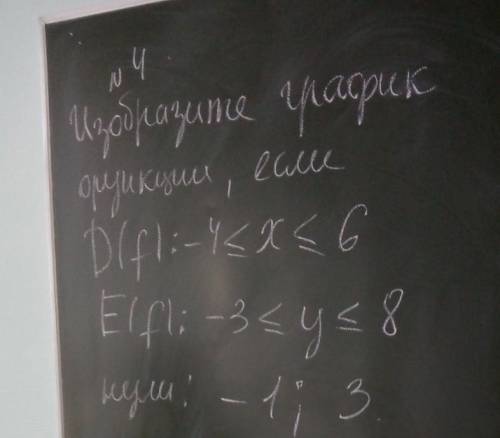 № 4
Изобразите график
функции, если
D(f): -4 ≤ x ≤ 6
E(f): -3 ≤ y ≤ 8
нули: -1; 3.